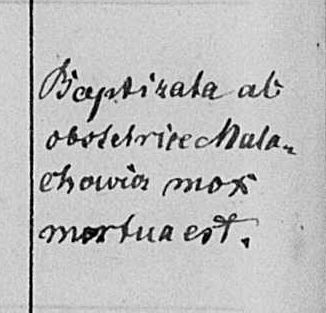 Baptizata ab
obstetrice Mala-
chowia mox
mortua est.